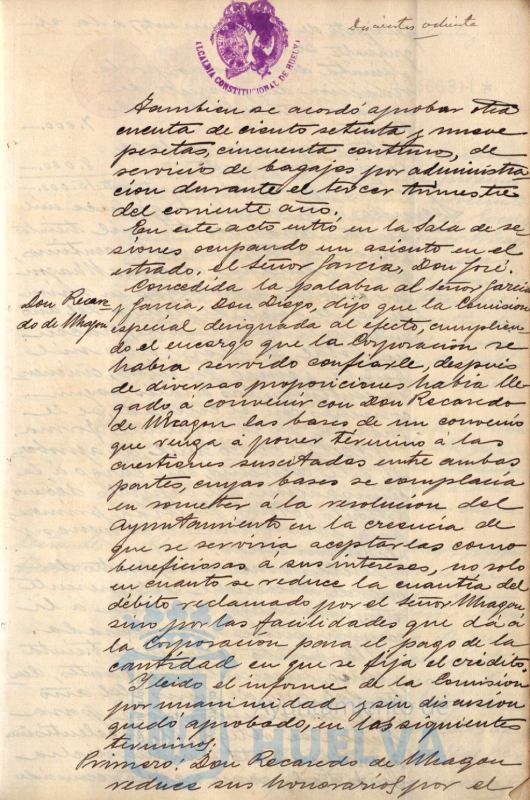 Discientos ochenta
ALCALDIA CONSTITUCIONAL DE HUELVA
Tambien se acordó aprobar otra
cuenta de ciento setenta y nueve
pesetas, cincuenta centimos, de
servicio de bagajes por administra
cion durante el tercer trimestre
del corriente año.
En este acto entró en la Sala de se-
siones ocupando un asiento en el
estrado, el Señor Garcia, Don José.
Concedida la palabra al Señor Garcia
Don Recare-
do de Uhagon
y Garcia, Don Diego, dijo que la Comision
especial designada al efecto, cumplien-
do el encargo que la Corporacion se
habia servido confiarle, después
de diversas proposiciones habia lle
gado á convenir con Don Recaredo
de Uhagon las bases de un convenio
que venga á poner término á las
cuestiones suscitadas entre ambas
partes, cuyas bases se complacia
en someter á la resolucion del
Ayuntamiento en la creencia de
que se serviria aceptarlas como
beneficiosas a sus intereses, no solo
en cuanto se reduce la cuantía del
débito reclamado por el Señor Uhagon
sino por las facilidades que dá á
la Corporación para el pago de la
cantidad en que se fija el crédito.
Y leido el informe de la Comision
por unanimidad y sin discusion
quedó aprobado, en los siguientes
términos;
HUELVA
Primero: Don Recaredo de Uhagon
reduce sus honorarios por el